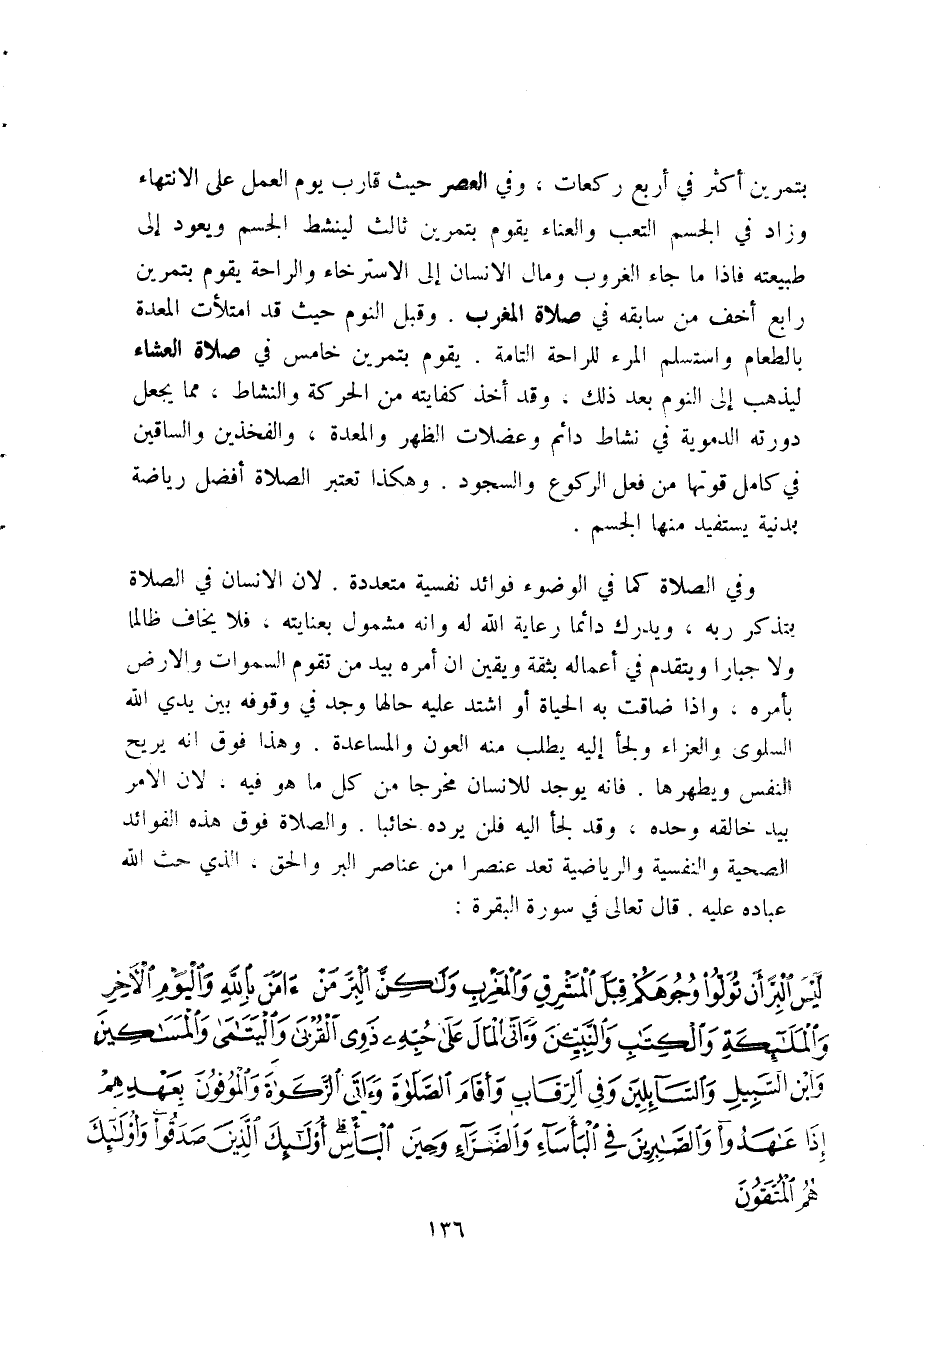 بتمرين أكثر في أربع ركعات ، وفي العصر حيث قارب يوم العمل على الانتهاء
وزاد في الجسم التعب والعناء يقوم بتمرين ثالث لينشط الجسم ويعود إلى
طبيعته فاذا ما جاء الغروب ومال الانسان إلى الاسترخاء والراحة يقوم بتمرين
رابع أخف من سابقه في صلاة المغرب . وقبل النوم حيث قد امتلأت المعدة
بالطعام واستسلم المرء للراحة التامة . يقوم بتمرين خامس في صلاة العشاء
ليذهب إلى النوم بعد ذلك ، وقد أخذ كفايته من الحركة والنشاط ، مما يجعل
دورته الدموية في نشاط دائم وعضلات الظهر والمعدة ، والفخذين والساقين
في كامل قوتها من فعل الركوع والسجود . وهكذا تعتبر الصلاة أفضل رياضة
بدنية يستفيد منها الجسم .
وفي الصلاة كما في الوضوء فوائد نفسية متعددة . لان الانسان في الصلاة
يتذكر ربه ، ويدرك دائما رعاية الله له وانه مشمول بعنايته ، فلا يخاف ظالما
ولا جبارا ويتقدم في أعماله بثقة ويقين ان أمره بيد من تقوم السموات والارض
بأمره ، واذا ضاقت به الحياة أو اشتد عليه حالها وجد في وقوفه بين يدي الله
السلوى والعزاء ولجأ إليه يطلب منه العون والمساعدة . وهذا فوق انه يريح
النفس ويطهرها . فانه يوجد للانسان مخرجا من كل ما هو فيه ، لان الامر
بيد خالقه وحده ، وقد لجأ اليه فلن يرده خائبا . والصلاة فوق هذه الفوائد
الصحية والنفسية والرياضية تعد عنصرا من عناصر البر والحق ، الذي حث الله
عباده عليه . قال تعالى في سورة البقرة :
لَّيْسَ ٱلْبِرَّ أَن تُوَلُّوا۟ وُجُوهَكُمْ قِبَلَ ٱلْمَشْرِقِ وَٱلْمَغْرِبِ وَلَـٰكِنَّ ٱلْبِرَّ مَنْ ءَامَنَ بِٱللَّهِ وَٱلْيَوْمِ ٱلْأَخِرِ
وَٱلْمَلَـٰٓئِكَةِ وَٱلْكِتَـٰبِ وَٱلنَّبِيِّـۧنَ وَءَاتَى ٱلْمَالَ عَلَىٰ حُبِّهِۦ ذَوِى ٱلْقُرْبَىٰ وَٱلْيَتَـٰمَىٰ وَٱلْمَسَـٰكِينَ
وَٱبْنَ ٱلسَّبِيلِ وَٱلسَّآئِلِينَ وَفِى ٱلرِّقَابِ وَأَقَامَ ٱلصَّلَوٰةَ وَءَاتَى ٱلزَّكَوٰةَ وَٱلْمُوفُونَ بِعَهْدِهِمْ
إِذَا عَـٰهَدُوا۟ وَٱلصَّـٰبِرِينَ فِى ٱلْبَأْسَآءِ وَٱلضَّرَّآءِ وَحِينَ ٱلْبَأْسِ ۗ أُو۟لَـٰٓئِكَ ٱلَّذِينَ صَدَقُوا۟ ۖ وَأُو۟لَـٰٓئِكَ
هُمُ ٱلْمُتَّقُونَ
١٣٦